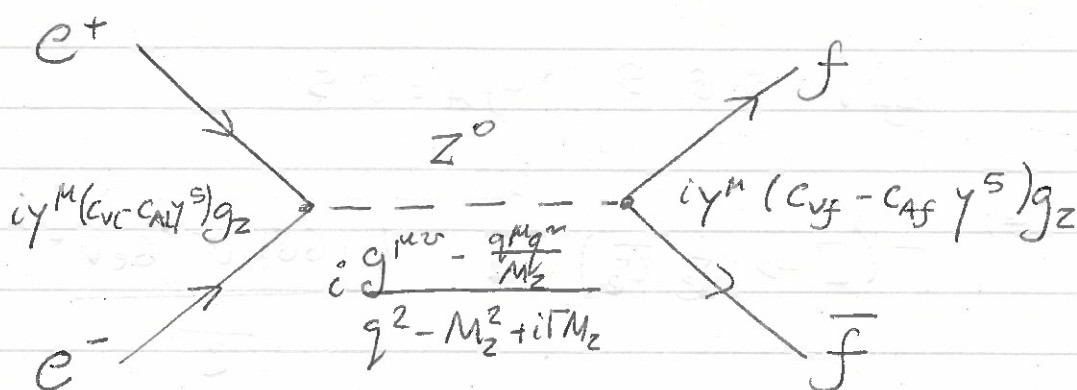 e⁺
f
Z⁰
iγ^μ(c_{Ve} - c_{Ae}γ⁵)g_z
iγ^μ (c_{Vf} - c_{Af} γ⁵)g_z
i \frac{g^{μν} - \frac{q^μ q^ν}{M_z^2}}{q² - M_z² + iΓM_z}
e⁻
f̄